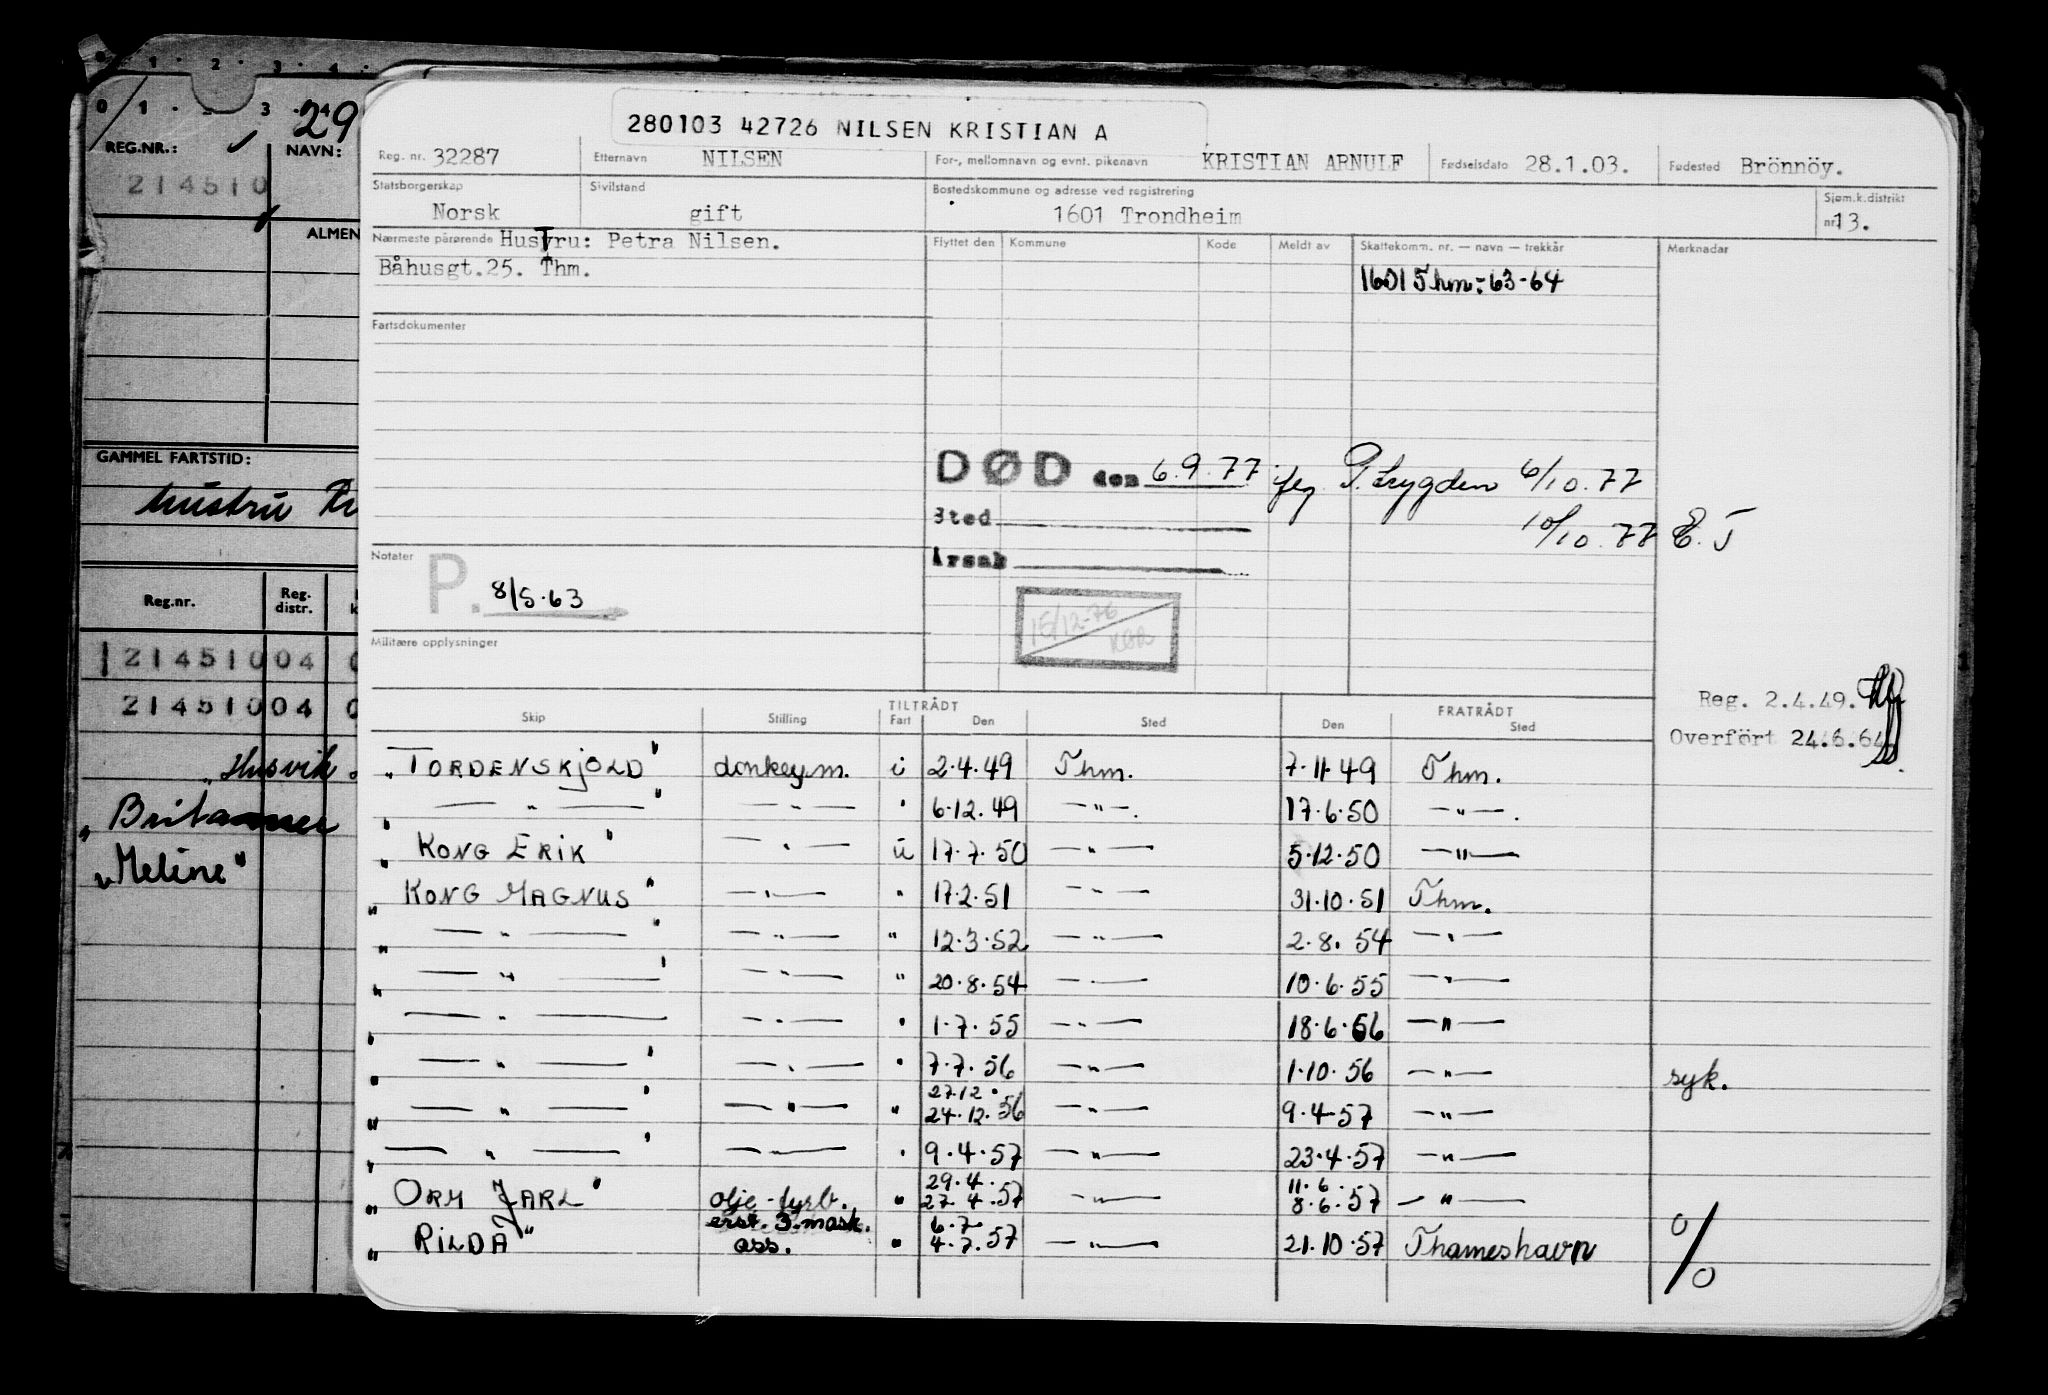 0 1 2 3 4
0 1 3 29
REG.NR.: NAVN:
214510
ALMEN
GAMMEL FARTSTID:
Hustru
Reg.nr. Reg. distr.
21451004
21451004
"Husvik
"Britannee
"Meline"
280103 42726 NILSEN KRISTIAN A
Reg. nr. 32287 Etternavn NILSEN For-, mellomnavn og evnt. pikenavn KRISTIAN ARNULF Fødselsdato 28.1.03. Fødested Brönnöy.
Statsborgerskap Sivilstand Bostedskommune og adresse ved registrering Sjøm.k.distrikt
Norsk gift 1601 Trondheim nr13.
Nærmeste pårørende Hustru: Petra Nilsen. Flyttet den Kommune Kode Meldt av Skattekomm. nr. — navn — trekkår Merknadar
Båhusgt.25. Thm. 1601 Thm:-63-64
Fartsdokumenter
DØD den 6.9.77 flg P.trygden 6/10.77
Sted 10/10.77 E.T
Årsak
Notater
P. 8/5.63
15/12-76
Militære opplysninger
Reg. 2.4.49.
Overfört 24.6.64
TILTRÅDT FRATRÅDT
Skip Stilling Fart Den Sted Den Sted
"TORDENSKJOLD" donkeym. i 2.4.49 Thm. 7.11.49 Thm.
" — " — " — " — " 6.12.49 — " —. 17.6.50 — " —.
"KONG ERIK" — " — u 17.7.50 — " — 5.12.50 — " —
"KONG MAGNUS" — " — " 17.2.51 — " — 31.10.51 Thm.
" — " — " — " — " 12.3.52 — " — 2.8.54 — " —
" — " — " — " — " 20.8.54 — " — 10.6.55 — " —
" — " — — " — " 1.7.55 — " — 18.6.56 — " —
" — " — " — " — " 7.7.56 — " — 1.10.56 — " — syk.
27.12.
" — " — " — " — " 24.12.56 — " — 9.4.57 — " —
" — " — " — " — " 9.4.57 — " — 23.4.57 — " —
29.4. 11.6.
"ORM JARL" olje-fyrb. " 27.4.57 — " — 8.6.57 — " —
erst. 3.mask. 6.7
"RILDA" ass. " 4.7.57 — " — 21.10.57 Thameshavn
0/0